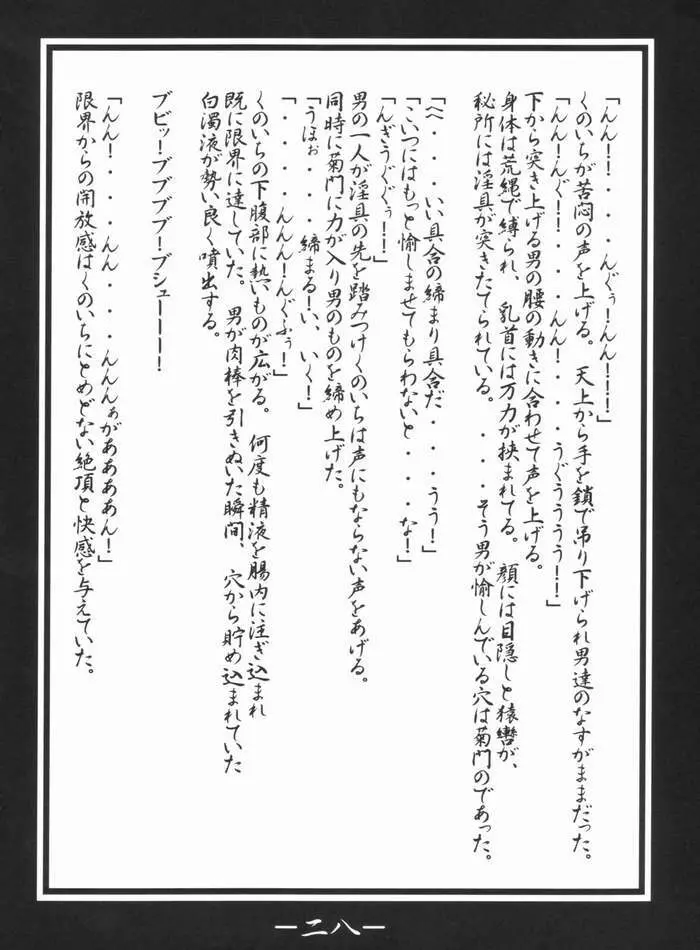 「んん！！・・・んぐぅ！んん！！！」
くのいちが苦悶の声を上げる。　天上から手を鎖で吊り下げられ男達のなすがままだった。
「んん！んぐ！！・・・んん！・・・うぐううう！！」
下から突き上げる男の腰の動きに合わせて声を上げる。
身体は荒縄で縛られ、　乳首には万力が挟まれてる。　顔には目隠しと猿轡が、
秘所には淫具が突きたてられている。　・・・そう男が愉しんでいる穴は菊門のであった。
「へ・・・いい具合の締まり具合だ・・・うう！」
「こいつにはもっと愉しませてもらわないと・・・な！」
「んぎうぐぐぅ！！」
男の一人が淫具の先を踏みつけくのいちは声にもならない声をあげる。
同時に菊門に力が入り男のものを締め上げた。
「うほぉ・・・締まる！い、いく！」
「・・・・んんん！んぐふぅ！」
くのいちの下腹部に熱いものが広がる。　何度も精液を腸内に注ぎ込まれ
既に限界に達していた。　男が肉棒を引きぬいた瞬間、　穴から貯め込まれていた
白濁液が勢い良く噴出する。
ブビッ！ブブブブ！ブシューーー！
「んん！・・・んん・・・んんんぁがああああん！」
限界からの開放感はくのいちにとめどない絶頂と快感を与えていた。
－二八－